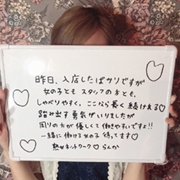 昨日、入店したばかりですが
女の子とも スタッフの方とも、
しゃべりやすく、ここなら長く続ける♡
踏み出す勇気がいりましたが
周りの方が優しくて働きやすいです!!
一緒に働ける女の子 待ってます♡
熟女ネットワーク♡ らんか